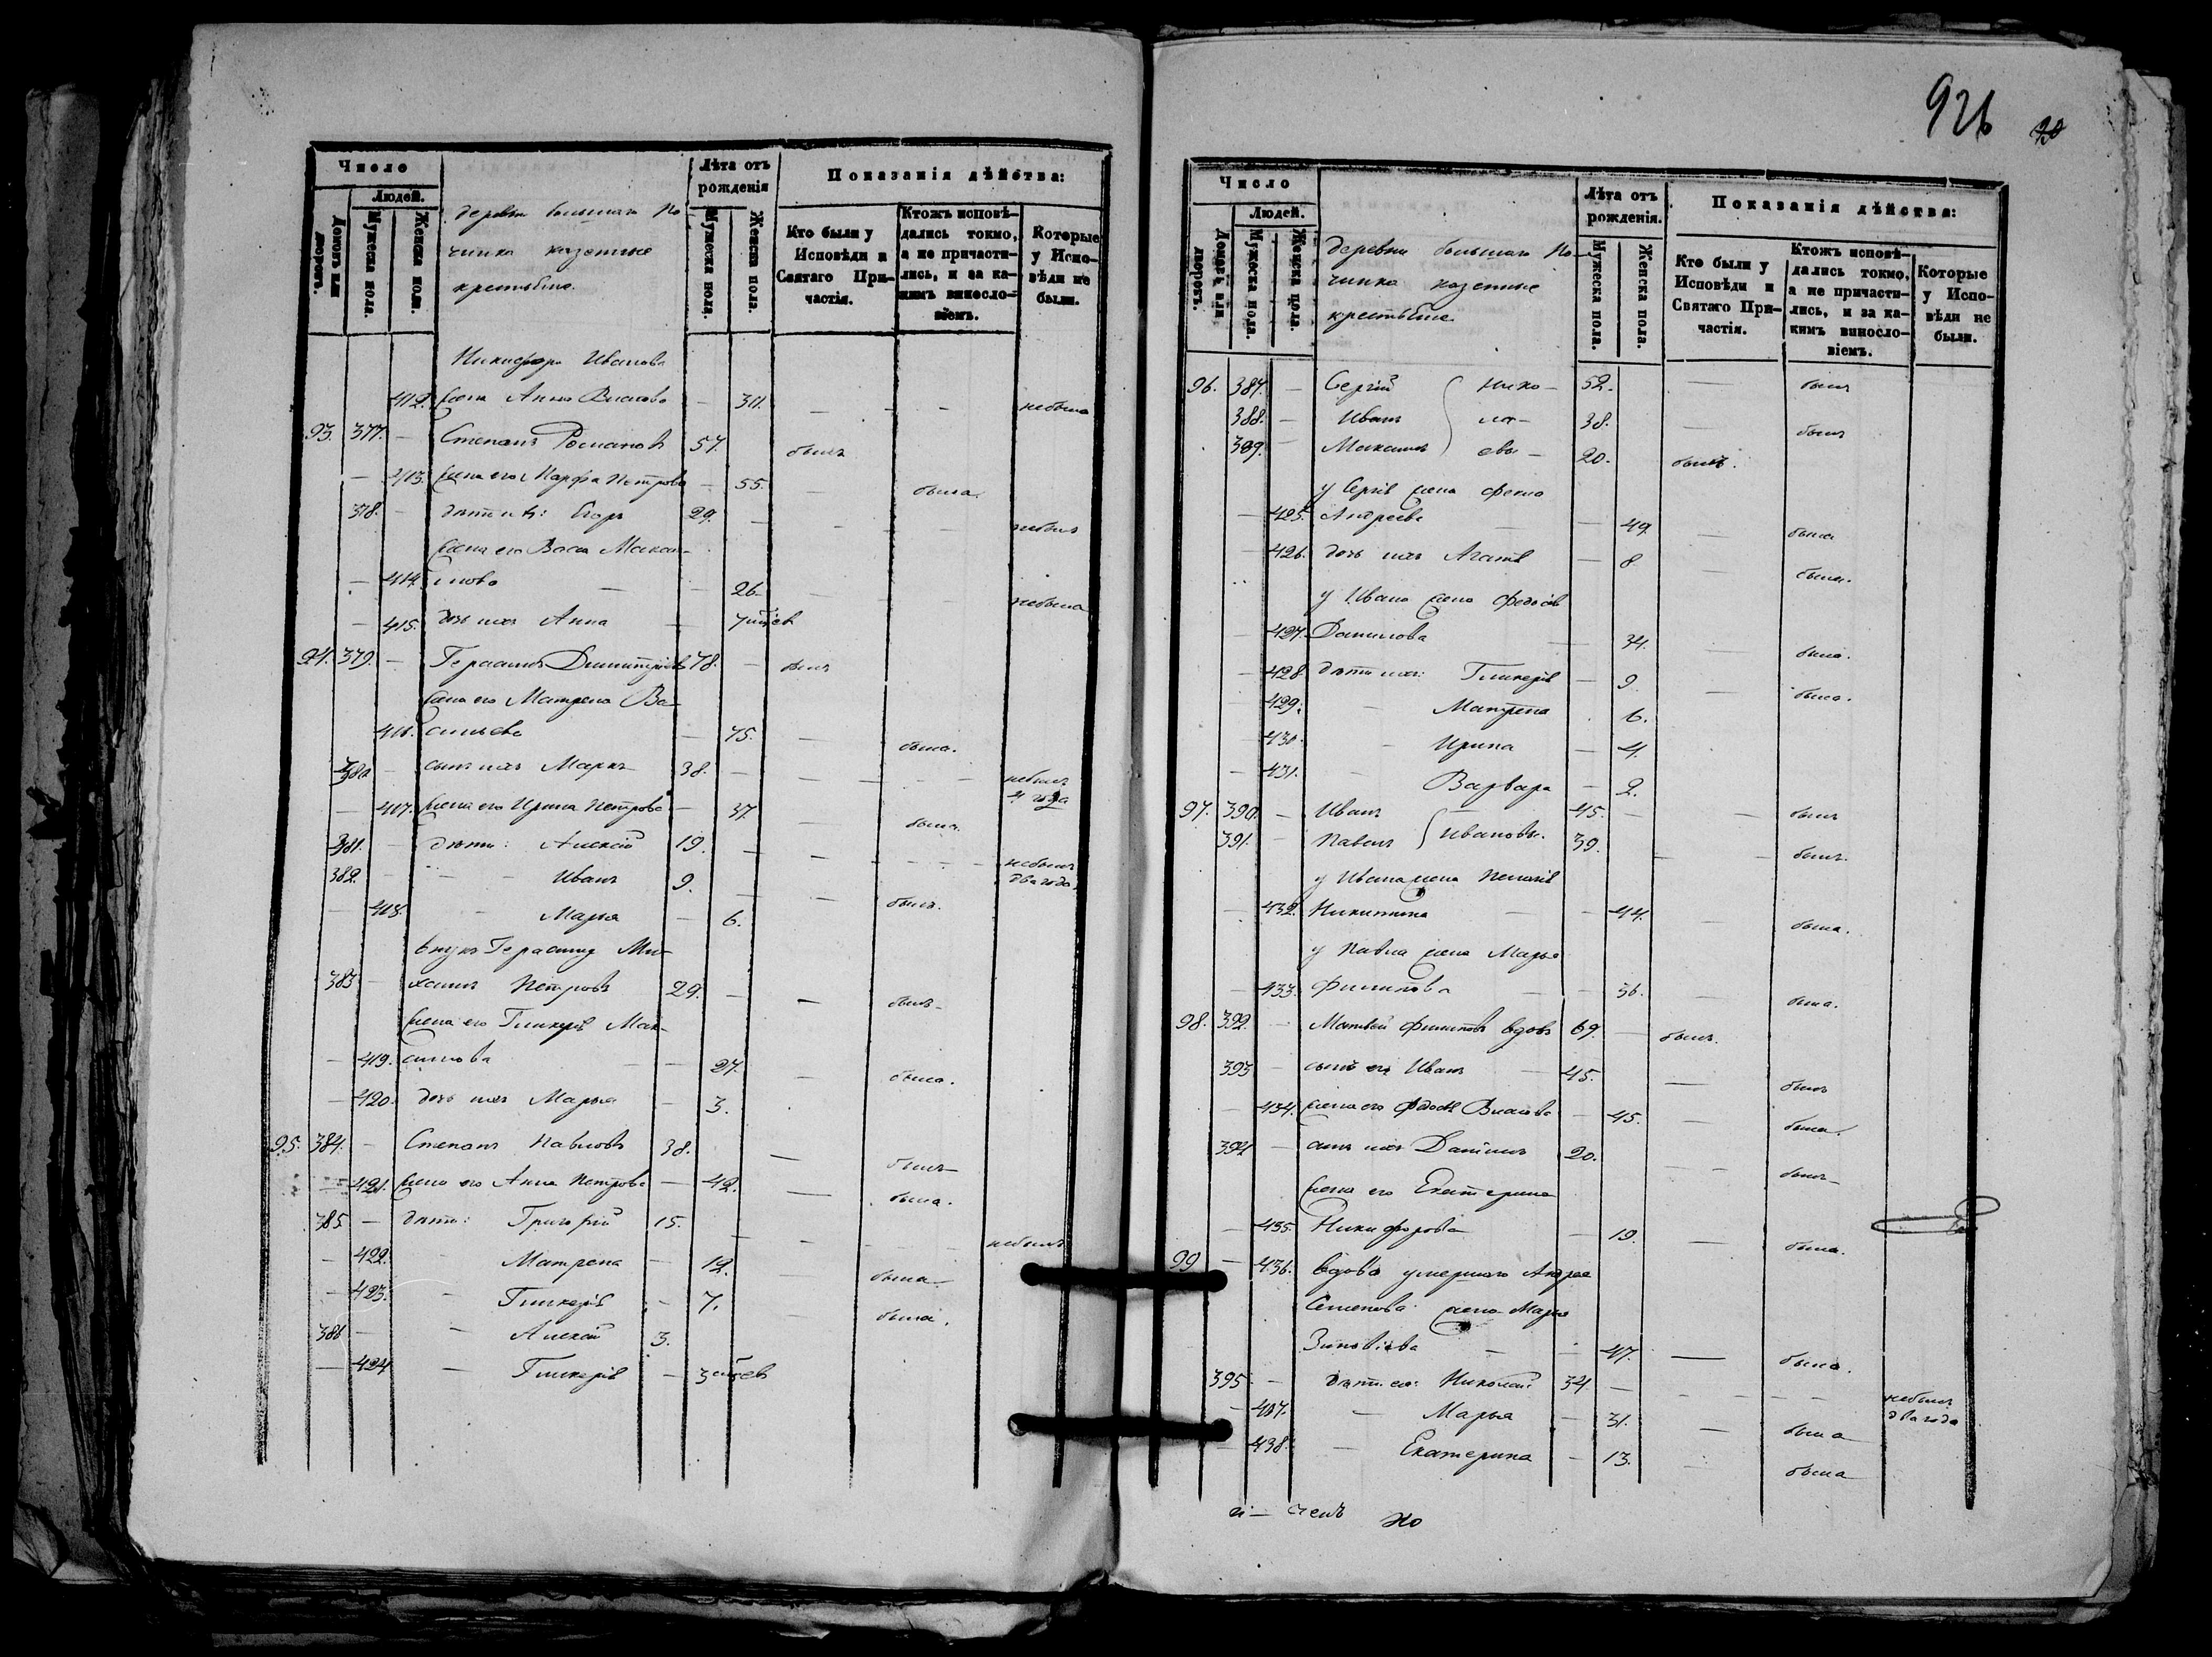 Число
Людей.
Домовъ или дворовъ.
Мужеска пола.
Женска пола.
деревни большаго По-
чинка казенные
крестьяне.
Лѣта отъ рожденія
Мужеска пола.
Женска пола.
Показанія дѣйства:
Кто были у Исповѣди и Святаго Причастія.
Ктожъ исповѣдались токмо, а не причастились, и за какимъ винословіемъ.
Которые у Исповѣди не были.
Никифора Иванова
412. жена Анна Власова — 311. — - небыла
93. 377. — Степанъ Романовъ 57. былъ
— 413. жена его Марфа Петрова — 55. — была.
378. — дѣти ихъ: Егоръ 29. — небылъ
жена его Васса Макси-
— 414. мова — 26. небыла
— 415. дочь ихъ Анна — 7 мѣсев
94. 379. — Герасимъ Димитріевъ 78. — былъ
жена его Матрена Ва-
416. сильева — 75. — была.
380 — сынъ ихъ Маркъ 38. — небылъ
4 года
— 417. жена его Ирина Петрова — 37. была.
381. — дѣти: Алексій 19. — небылъ
два года
382. — Иванъ 9. — былъ.
— 418. Марья — 6.
внукъ Герасима Ми-
383 — хаилъ Петровъ 29. — былъ
жена его Гликерія Мак-
— 419. симова — 27. — была.
— 420. дочь ихъ Марья — 3.
95. 384. — Степанъ Павловъ 38. — былъ
— 421. жена его Анна Петрова — 42. — была.
385 — дѣти: Григорій 15. — небылъ
— 422. Матрена — 12. — была
— 423. Гликерія — 7. — была.
386 — Алексій 3.
— 424 — Гликерія — 3 мѣсев
926
20
Число
Людей.
Домовъ или дворовъ.
Мужеска пола.
Женска пола.
деревни большаго По-
чинка казенные
крестьяне.
Лѣта отъ рожденія.
Мужеска пола.
Женска пола.
Показанія дѣйства:
Кто были у Исповѣди и Святаго Причастія.
Ктожъ исповѣдались токмо, а не причастились, и за какимъ винословіемъ.
Которые у Исповѣди не были.
96. 387. — Сергій Нико- 52. — былъ
388. — Иванъ ла- 38. — былъ
389. — Максимъ евы — 20. былъ.
у Сергія жена Фекла
— 425. Андреева — 49. — была
— 426. дочь ихъ Агафія — 8 — была.
у Ивана жена Федосія
— 427. Данилова — 34. — была.
— 428. дѣти ихъ: Гликерія — 9. — была.
429. — Матрена 6.
430. — Ирина — 4.
— 431. — Варвара — 2.
97. 390. — Иванъ Ивановы. 45. — былъ
391. — Павелъ 39. — былъ.
у Ивана жена Пелагія
— 432. Никитина — 44. была.
у Павла жена Марья
— 433. Филипова — 36. — была.
98. 392. — Матвѣй Филиповъ вдовъ 69. — былъ.
393 — сынъ его Иванъ — 45. — былъ
— 434. жена его Федосія Власова — 45. — была.
394 — сынъ ихъ Даніилъ 20. — былъ
жена его Екатерина
— 435. Никифорова — 19. — была.
99 — 436. вдова умершаго Андрея
Семенова жена Марья
Зиновіева — 47. — была.
395. — дѣти ея: Николай 34 — небылъ
два года
— 437. — Марья — 31. — была
— 438. — Екатерина — 13. — была